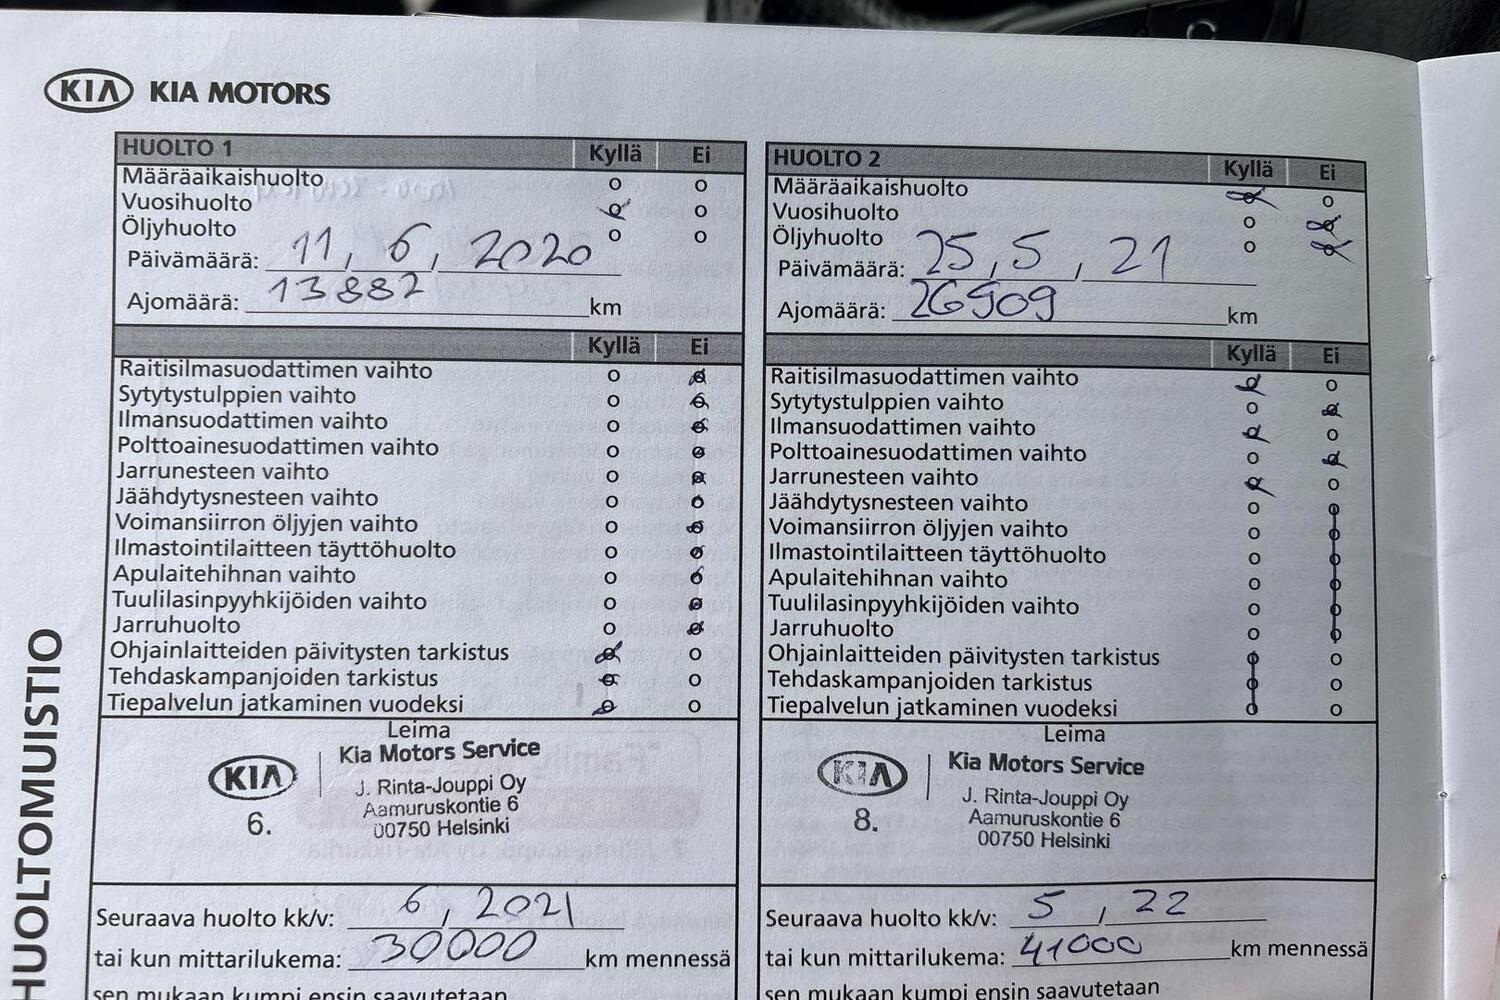 KIA KIA MOTORS
HUOLTOMUISTIO
HUOLTO 1 Kyllä Ei
Määräaikaishuolto
Vuosihuolto
Öljyhuolto
Päivämäärä: 11, 6, 2020
Ajomäärä: 13882 km
Kyllä Ei
Raitisilmasuodattimen vaihto
Sytytystulppien vaihto
Ilmansuodattimen vaihto
Polttoainesuodattimen vaihto
Jarrunesteen vaihto
Jäähdytysnesteen vaihto
Voimansiirron öljyjen vaihto
Ilmastointilaitteen täyttöhuolto
Apulaitehihnan vaihto
Tuulilasinpyyhkijöiden vaihto
Jarruhuolto
Ohjainlaitteiden päivitysten tarkistus
Tehdaskampanjoiden tarkistus
Tiepalvelun jatkaminen vuodeksi
Leima
KIA Kia Motors Service
J. Rinta-Jouppi Oy
Aamuruskontie 6
6. 00750 Helsinki
Seuraava huolto kk/v: 6, 2021
tai kun mittarilukema: 30000 km mennessä
sen mukaan kumpi ensin saavutetaan
HUOLTO 2 Kyllä Ei
Määräaikaishuolto
Vuosihuolto
Öljyhuolto
Päivämäärä: 25, 5, 21
Ajomäärä: 26909 km
Kyllä Ei
Raitisilmasuodattimen vaihto
Sytytystulppien vaihto
Ilmansuodattimen vaihto
Polttoainesuodattimen vaihto
Jarrunesteen vaihto
Jäähdytysnesteen vaihto
Voimansiirron öljyjen vaihto
Ilmastointilaitteen täyttöhuolto
Apulaitehihnan vaihto
Tuulilasinpyyhkijöiden vaihto
Jarruhuolto
Ohjainlaitteiden päivitysten tarkistus
Tehdaskampanjoiden tarkistus
Tiepalvelun jatkaminen vuodeksi
Leima
KIA Kia Motors Service
J. Rinta-Jouppi Oy
8. Aamuruskontie 6
00750 Helsinki
Seuraava huolto kk/v: 5, 22
tai kun mittarilukema: 41000 km mennessä
sen mukaan kumpi ensin saavutetaan